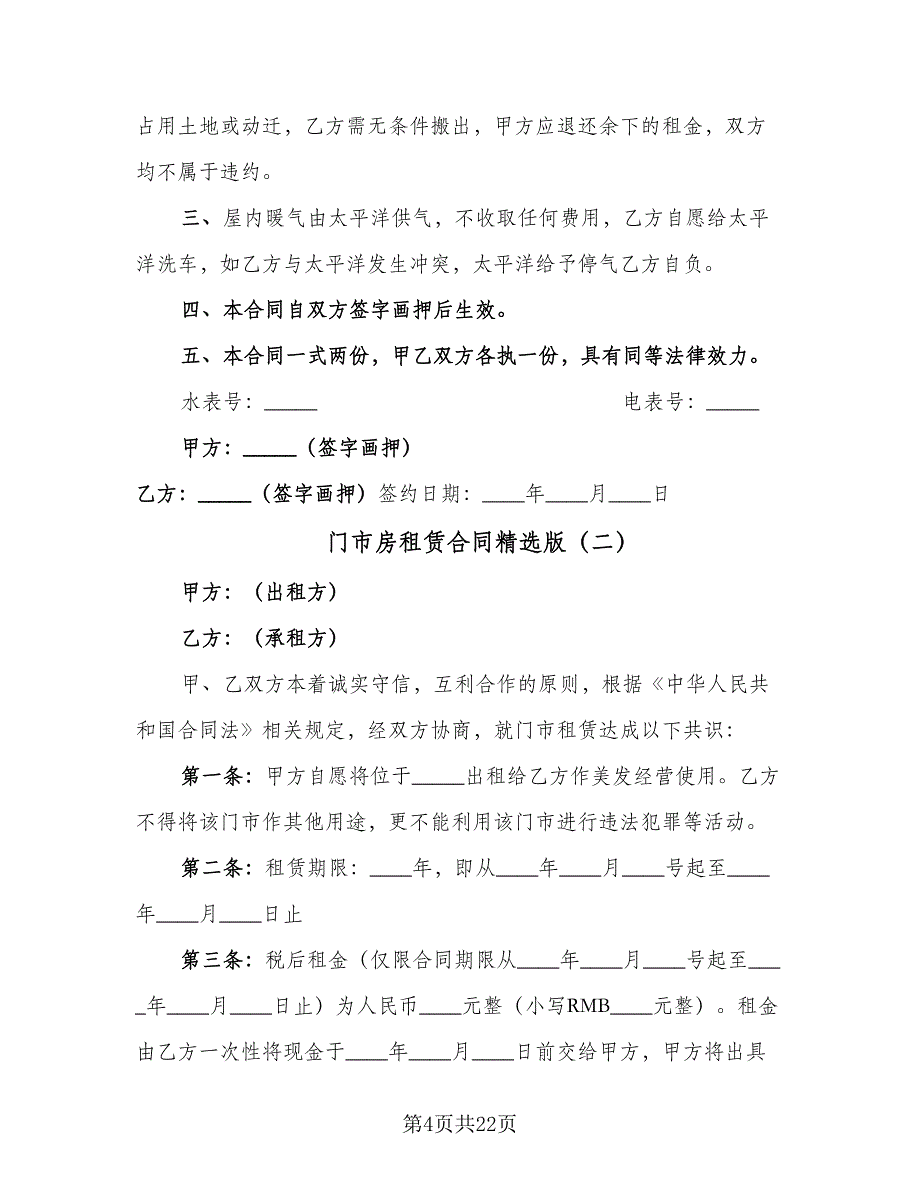 占用土地或动迁，乙方需无条件搬出，甲方应退还余下的租金，双方
均不属于违约。
三、屋内暖气由太平洋供气，不收取任何费用，乙方自愿给太平
洋洗车，如乙方与太平洋发生冲突，太平洋给予停气乙方自负。
四、本合同自双方签字画押后生效。
五、本合同一式两份，甲乙双方各执一份，具有同等法律效力。
水表号：_____ 电表号：_____
甲方：_____（签字画押）
乙方：_____（签字画押）签约日期：____年____月____日
门市房租赁合同精选版（二）
甲方：（出租方）
乙方：（承租方）
甲、乙双方本着诚实守信，互利合作的原则，根据《中华人民共
和国合同法》相关规定，经双方协商，就门市租赁达成以下共识：
第一条：甲方自愿将位于_____出租给乙方作美发经营使用。乙方
不得将该门市作其他用途，更不能利用该门市进行违法犯罪等活动。
第二条：租赁期限：____年，即从____年____月____号起至____
年____月____日止
第三条：税后租金（仅限合同期限从____年____月____号起至___
_年____月____日止）为人民币____元整（小写RMB____元整）。租金
由乙方一次性将现金于____年____月____日前交给甲方，甲方将出具
第4页共22页